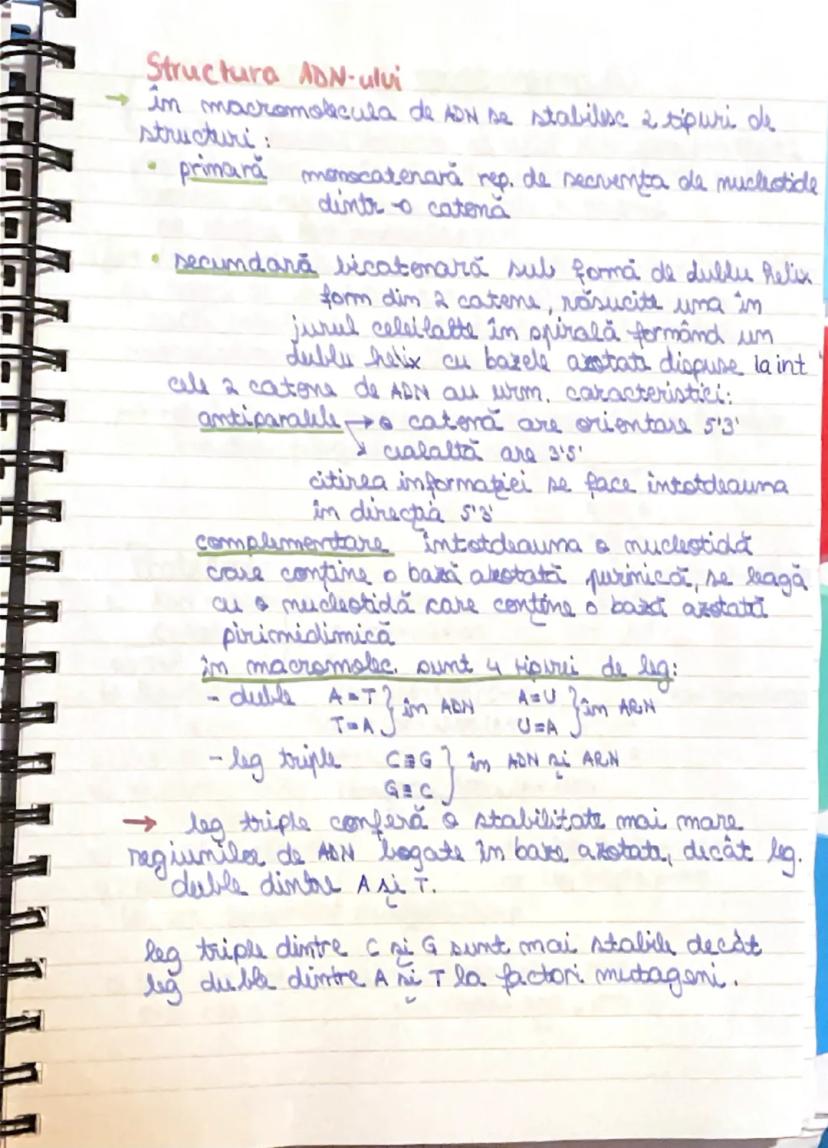 Structura ADN-ului
→ În macromolecula de ADN se stabilesc 2 tipuri de
structuri:
• primară monocatenară rep. de secvența de nucleotide
dintr-o catenă
• secundară bicatenară sub formă de dublu helix
form din 2 catene, răsucite una în
jurul celeilalte în spirală formând un
dublu helix cu bazele azotate dispuse la int
cele 2 catene de ADN au urm. caracteristici:
antiparalele → o catenă are orientare 5'3'
↘ cealaltă are 3'5'
citirea informației se face întotdeauna
în direcția 5'3'
complementare întotdeauna o nucleotidă
care conține o bază azotată purinică, se leagă
cu o nucleotidă care conține o bază azotată
pirimidinică
în macromolec. sunt 4 tipuri de leg:
- duble A=T } în ADN A=U } în ARN
T=A U=A
- leg triple C≡G } în ADN și ARN
G≡C
→ leg triple conferă o stabilitate mai mare
regiunilor de ADN bogate în baze azotate, decât leg.
duble dintre A și T.
leg triple dintre C și G sunt mai stabile decât
leg duble dintre A și T la factori mutageni.